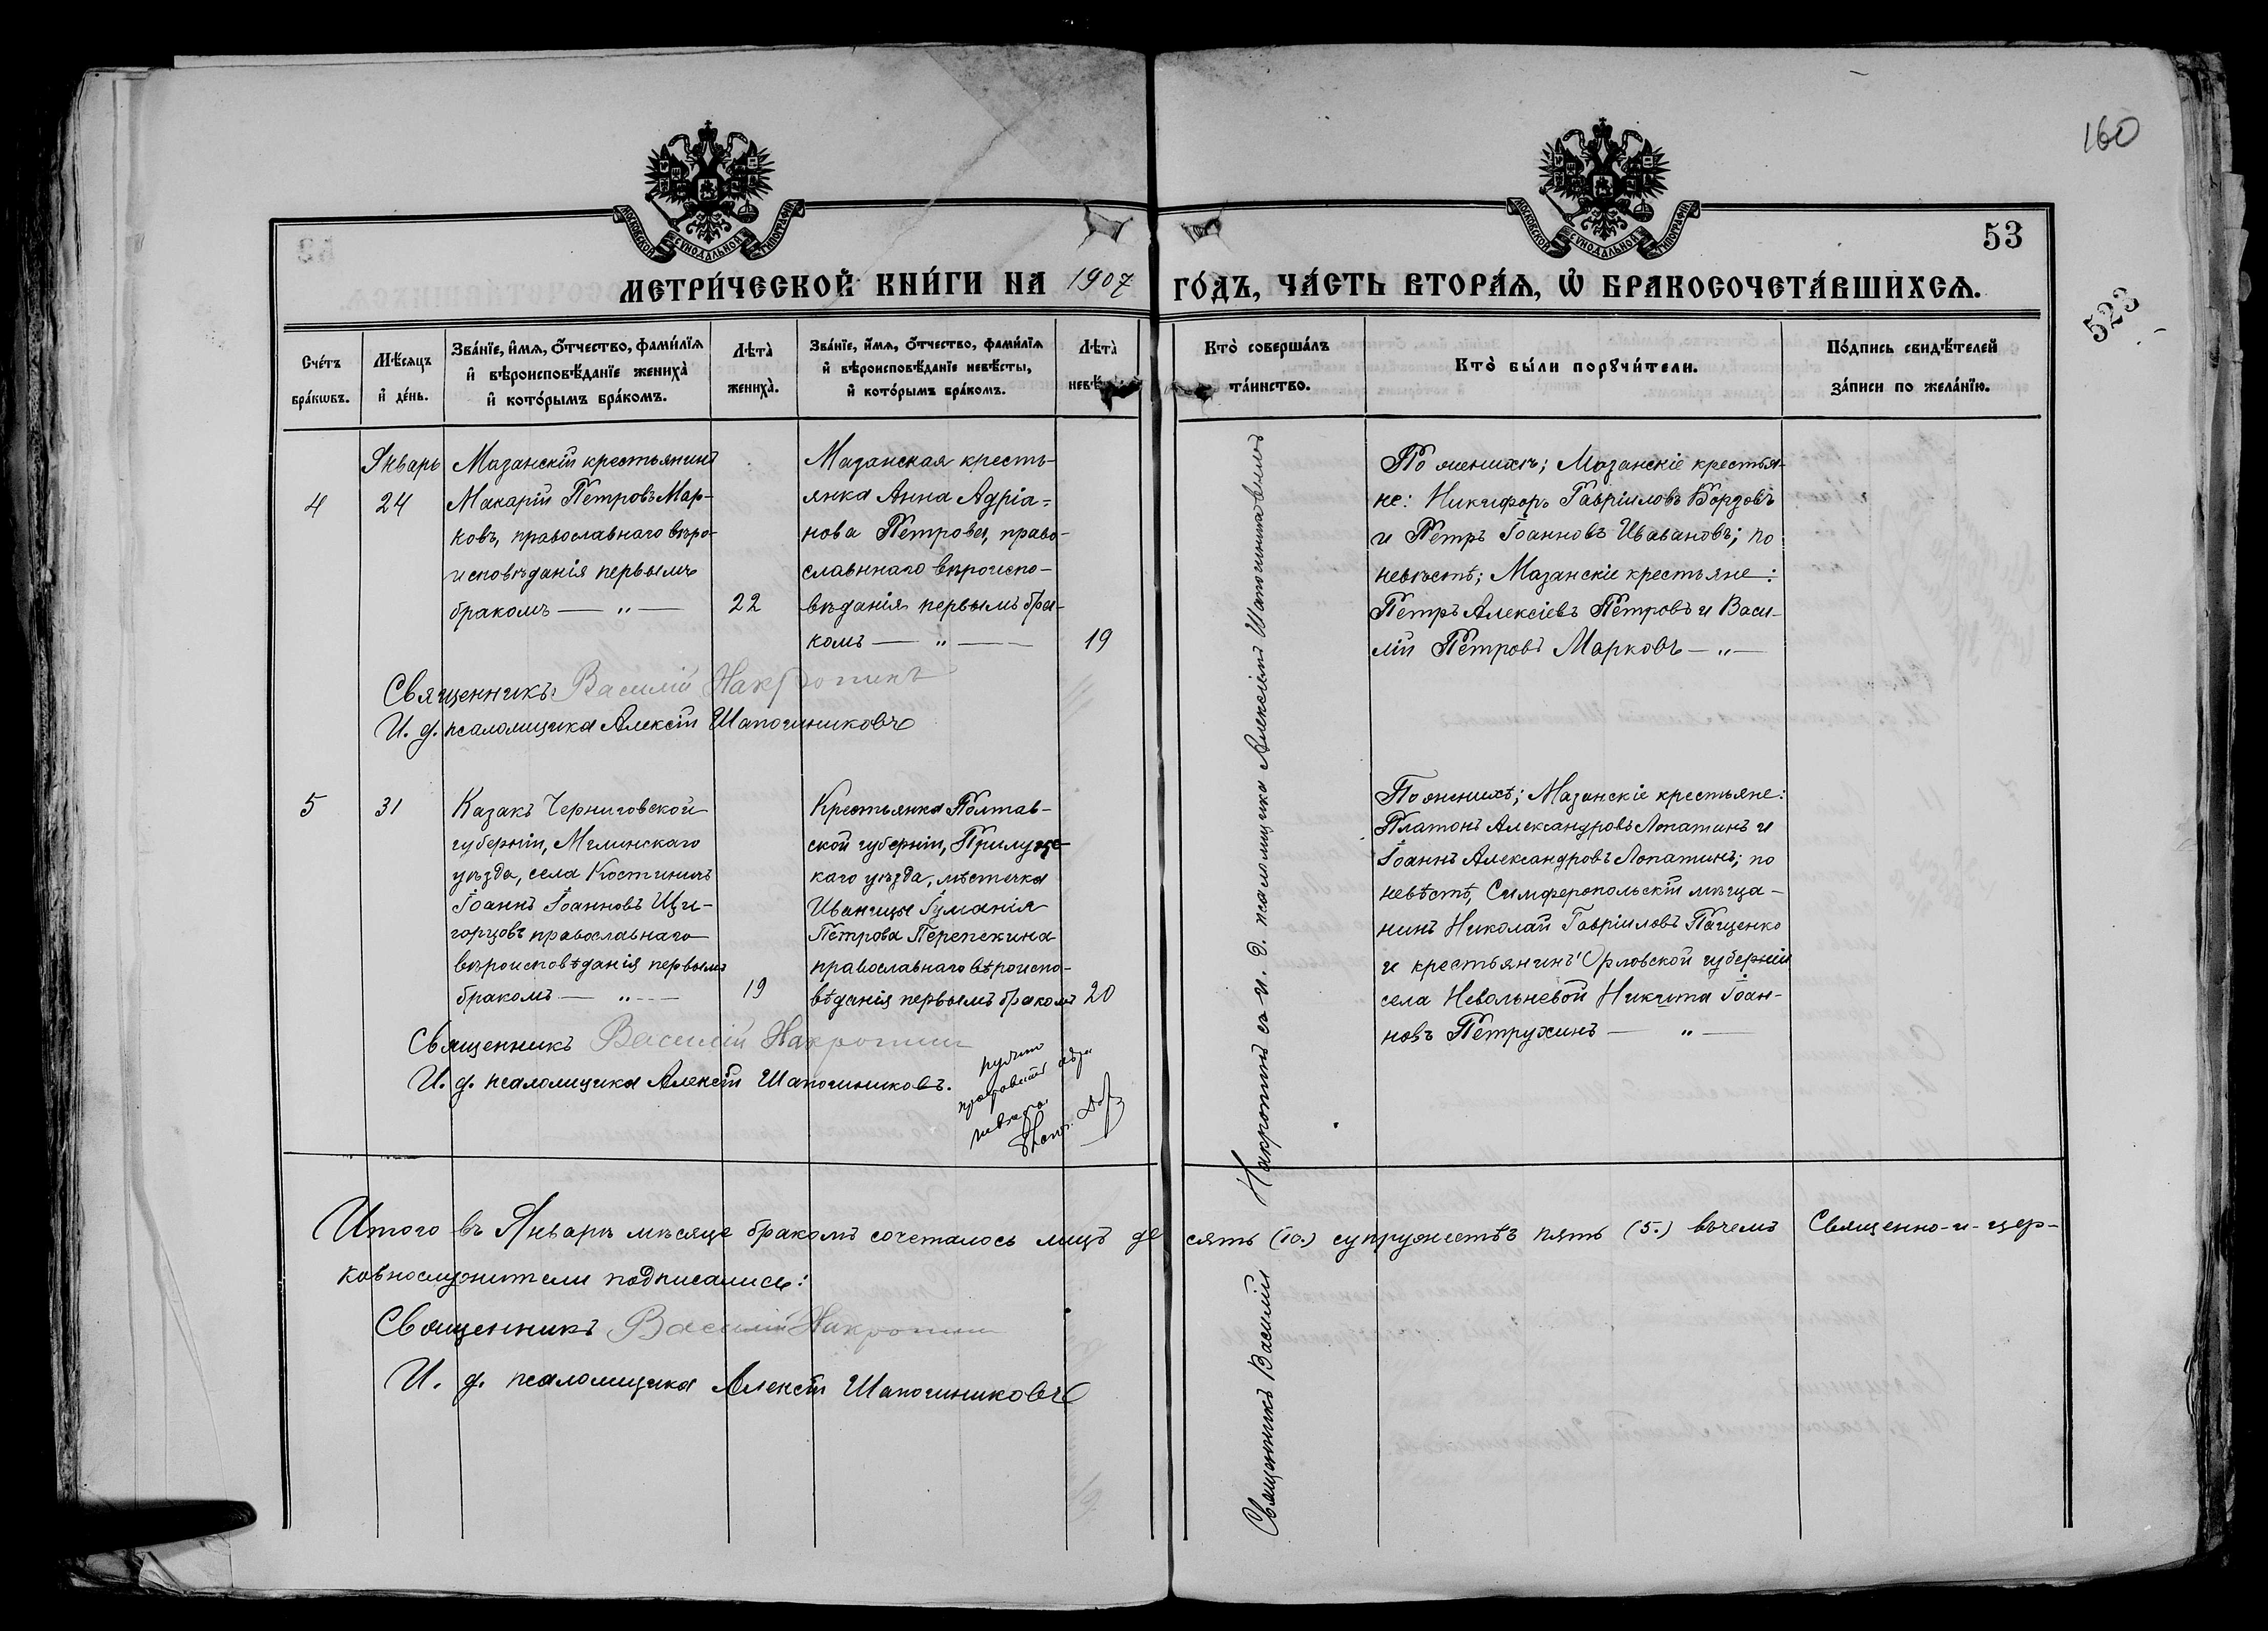 160
МОСКОВСКОЙ СѴНОДАЛЬНОЙ ТИПОГРАФІИ
МОСКОВСКОЙ СѴНОДАЛЬНОЙ ТИПОГРАФІИ
53
МЕТРИ́ЧЕСКОЙ КНИ́ГИ НА 1907 ГО́ДЪ, ЧА́СТЬ ВТОРА́Ѧ, Ѡ҆ БРАКОСОЧЕТА́ВШИХСѦ.
523
Сче́тъ
бра́кѡвъ.
Мѣ́сяцъ
и҆ де́нь.
Зва́нїе, и҆́мѧ, ѻ҆́тчество, фами́лїѧ
и҆ вѣроисповѣ́данїе жениха̀
и҆ кото́рымъ бра́комъ.
Лѣта̀
жениха̀.
Зва́нїе, и҆́мѧ, ѻ҆́тчество, фами́лїѧ
и҆ вѣроисповѣ́данїе невѣ́сты,
и҆ кото́рымъ бра́комъ.
Лѣта̀
невѣ́
Кто̀ соверша́лъ
та́инство.
Кто̀ бы́ли порꙋчи́тели.
По́дпись свидѣ́телей
за́писи по жела́нїю.
4
Январь
24
Мазанскій крестьянинъ
Макарій Петровъ Мар-
ковъ, православнаго вѣро-
исповѣданія первымъ
бракомъ — „ —
22
Мазанская кресть-
янка Анна Адріа=
нова Петрова, право-
славннаго вѣроиспо-
вѣданія первымъ бра-
комъ — „ —
19
По женихѣ; Мазанскіе крестья-
не: Никифоръ Гавріиловъ Борзовъ
и Петръ Іоанновъ Ивавановъ; по
невѣстѣ; Мазанскіе крестьяне:
Петръ Алексіевъ Петровъ и Васи-
лій Петровъ Марковъ — „ —
Священникъ Василій Накропинъ
И. д. псаломщика Алексѣй Шапошниковъ
5
31
Казакъ Черниговской
губерніи, Мглинскаго
уѣзда, села Костиничъ
Іоаннъ Іоанновъ Щи-
горцовъ православнаго
вѣроисповѣданія первымъ
бракомъ — „ —
19
Крестьянка Полтав-
ской губерніи, Прилуцс-
каго уѣзда, мѣстечка
Иваницы Гуманія
Петрова Перепекина
православнаго вѣроиспо-
вѣданія первымъ бракомъ
20
По женихѣ; Мазанскіе крестьяне:
Платонъ Александровъ Лопатинъ и
Іоаннъ Александровъ Лопатинъ; по
невѣстѣ, Симферопольскій мѣща-
нинъ Николай Гавріиловъ Пащенко
и крестьянинъ Орловской губерніи
села Невольневой Никита Іоан-
новъ Петрухинъ — „ —
Священникъ Василій Накропинъ
И. д. псаломщика Алексѣй Шапошниковъ.
Священникъ Василій Накропинъ съ и. д. псаломщика Алексѣемъ Шапошниковымъ
Итого въ Январѣ мѣсяцѣ бракомъ сочеталось лицъ десять (10.) супружествъ пять (5.) въ чемъ Священно-и-цер-
ковнослужители подписались:
Священникъ Василій Накропинъ
И. д. псаломщика Алексѣй Шапошниковъ